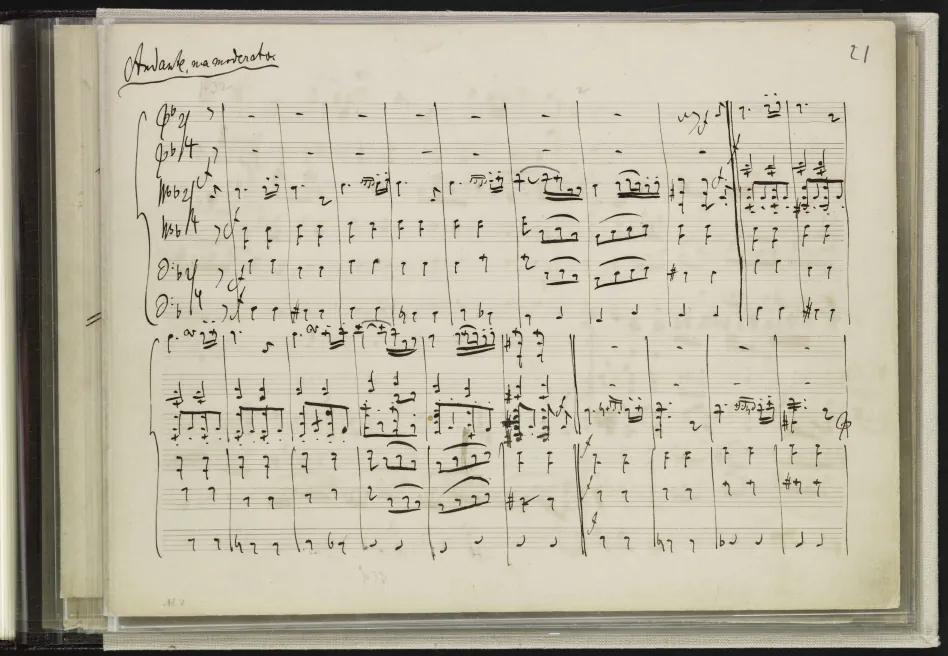 Andante, ma moderato
21